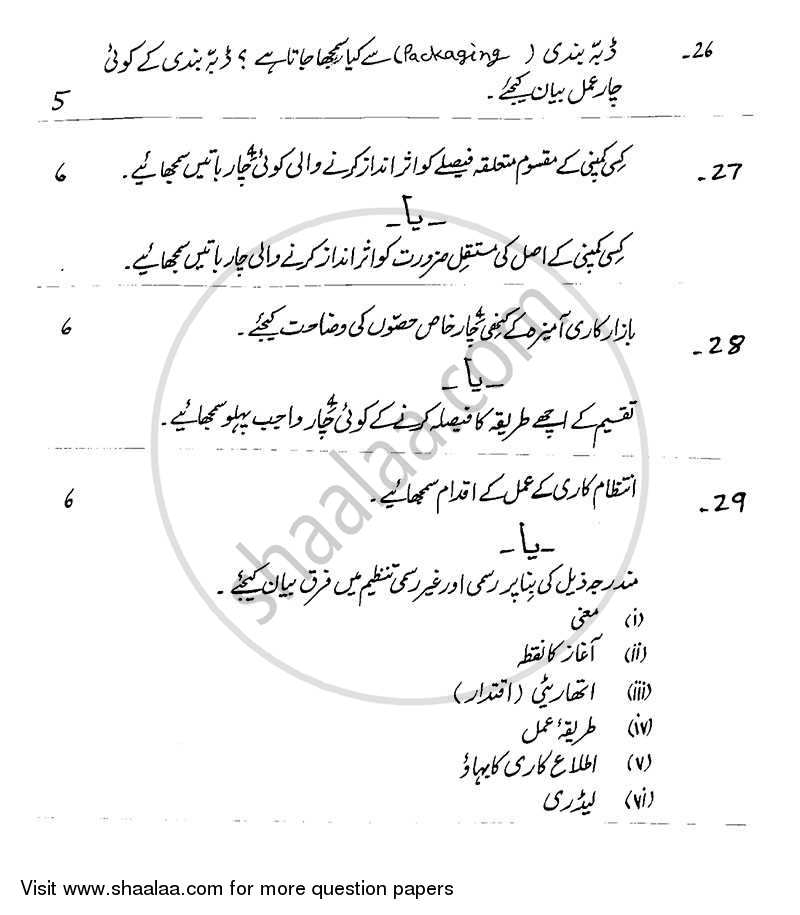 26- ڈبّہ بندی (Packaging) سے کیا سمجھا جاتا ہے ؟ ڈبّہ بندی کے کوئی
چار عمل بیان کیجئے ۔
5
27- کسی کمپنی کے مقسوم متعلقہ فیصلے کو اثر انداز کرنے والی کوئی چار 4 باتیں سمجھائیے ۔ 6
- یا -
کسی کمپنی کے اصل کی مستقل ضرورت کو اثر انداز کرنے والی چار باتیں سمجھائیے ۔
28- بازار کاری آمیزہ کے کنھی چار 4 خاص حصّوں کی وضاحت کیجئے ۔ 6
- یا -
تقسیم کے اچھے طریقہ کا فیصلہ کرنے کے کوئی چار 4 واجب پہلو سمجھائیے ۔
29- انتظام کاری کے عمل کے اقدام سمجھائیے ۔ 6
- یا -
مندرجہ ذیل کی بنا پر رسمی اور غیر رسمی تنظیم میں فرق بیان کیجئے ۔
(i) معنی
(ii) آغاز کا نقطہ
(iii) اتھارٹی (اقتدار)
(iv) طریقۂ عمل
(v) اطلاع کاری کا بہاؤ
(vi) لیڈری
shaalaa.com
Visit www.shaalaa.com for more question papers